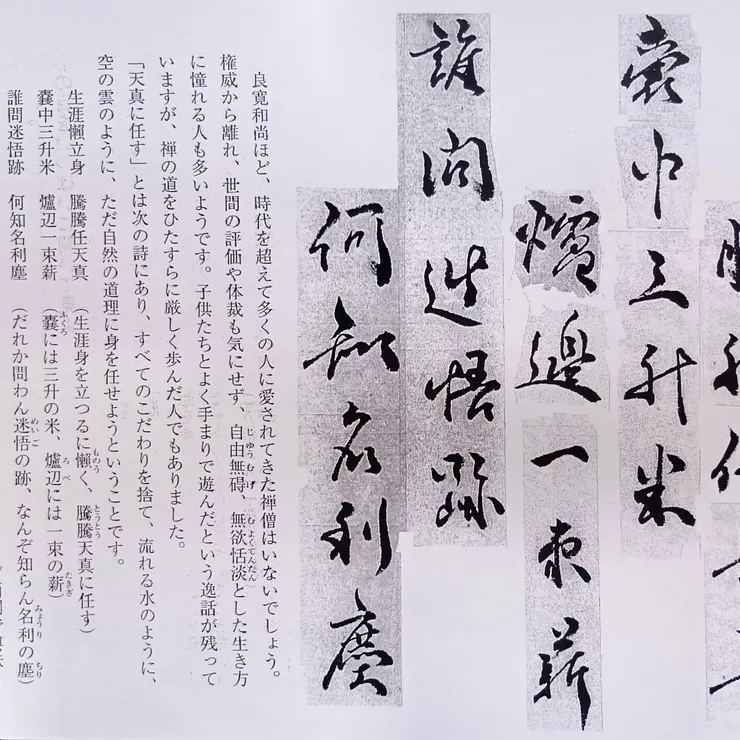 嚢中三升米
爐邊一束薪
誰問迷悟跡
何知名利塵
良寛和尚ほど、時代を超えて多くの人に愛されてきた禅僧はいないでしょう。
権威から離れ、世間の評価や体裁も気にせず、自由無碍、無欲恬淡とした生き方
に憧れる人も多いようです。子供たちとよく手まりで遊んだという逸話が残って
いますが、禅の道をひたすらに厳しく歩んだ人でもありました。
「天真に任す」とは次の詩にあり、すべてのこだわりを捨て、流れる水のように、
空の雲のように、ただ自然の道理に身を任せようということです。
生涯懶立身 騰騰任天真 (生涯身を立つるに懶く、騰騰天真に任す)
嚢中三升米 爐辺一束薪 (嚢には三升の米、爐辺には一束の薪)
誰問迷悟跡 何知名利塵 (だれか問わん迷悟の跡、なんぞ知らん名利の塵)